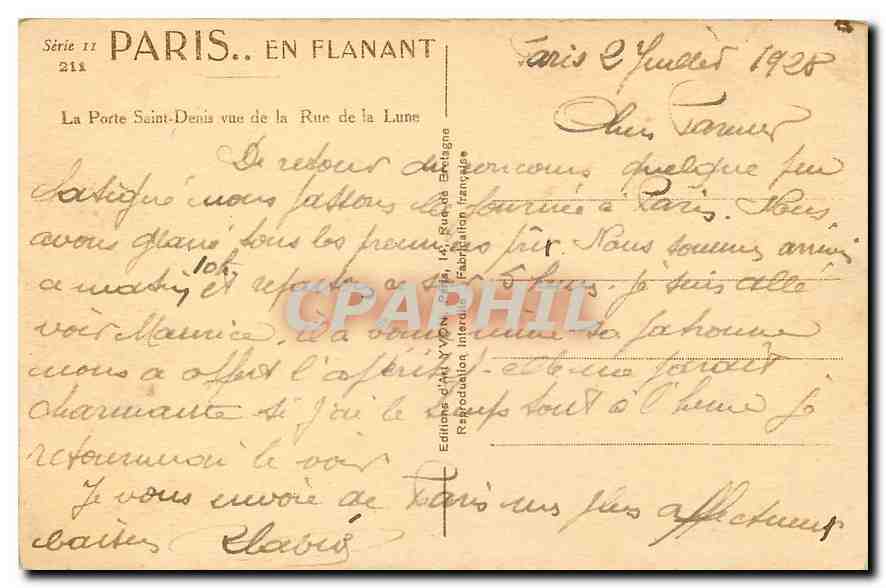 Série 11
211
PARIS.. EN FLANANT
La Porte Saint-Denis vue de la Rue de la Lune
Editions d'Art YVON, Paris, 14, Rue de Bretagne
Reproduction Interdite Fabrication française
Paris 2 Juillet 1928
De retour du concours quelque peu
fatigué nous passons la journée à Paris. Nous
avons glané tous les premiers prix. Nous sommes arrivés
ce matin 10h et repartons ce soir 5 heures. je suis allé
voir Maurice, sa patronne
nous a offert l'apéritif. elle me parait
charmante si j'ai le temps tout à l'heure je
retournerai le voir
Je vous envoie de Paris mes plus affectueux
baisers
CPAPHIL